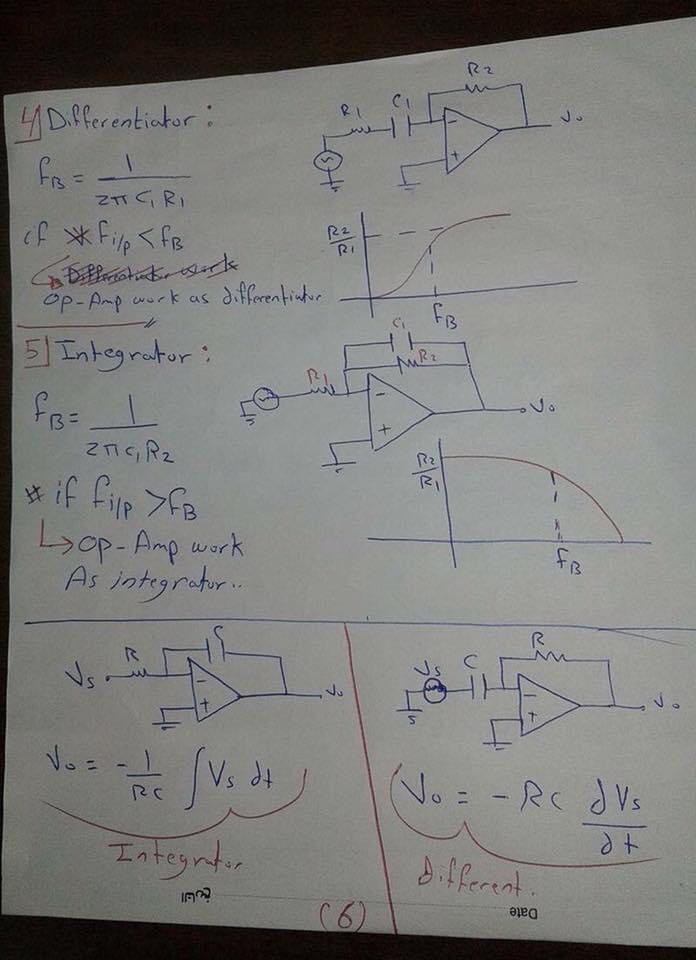 4] Differentiator :
fB = 1 / 2π C1 R1
if * fi/p < fB
Differentiator work
Op-Amp work as differentiator
R1
C1
R2
-
+
Vo
R2/R1
fB
5] Integrator :
fB = 1 / 2π C1 R2
* if fi/p > fB
Op-Amp work
As integrator..
R1
C1
R2
-
+
Vo
R2/R1
fB
Vs
R
C
-
+
Vo
Vo = - 1/RC ∫ Vs dt
Integrator
Vs
C
R
-
+
Vo
Vo = - RC dVs/dt
Different.
التاريخ
(6)
Date